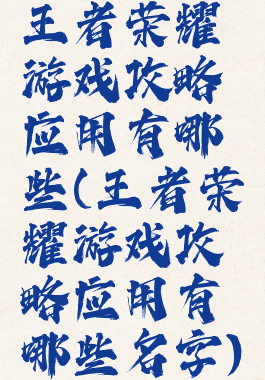 王者荣耀
游戏攻略
应用有哪
些(王者荣
耀游戏攻
略应用有
哪些名字)